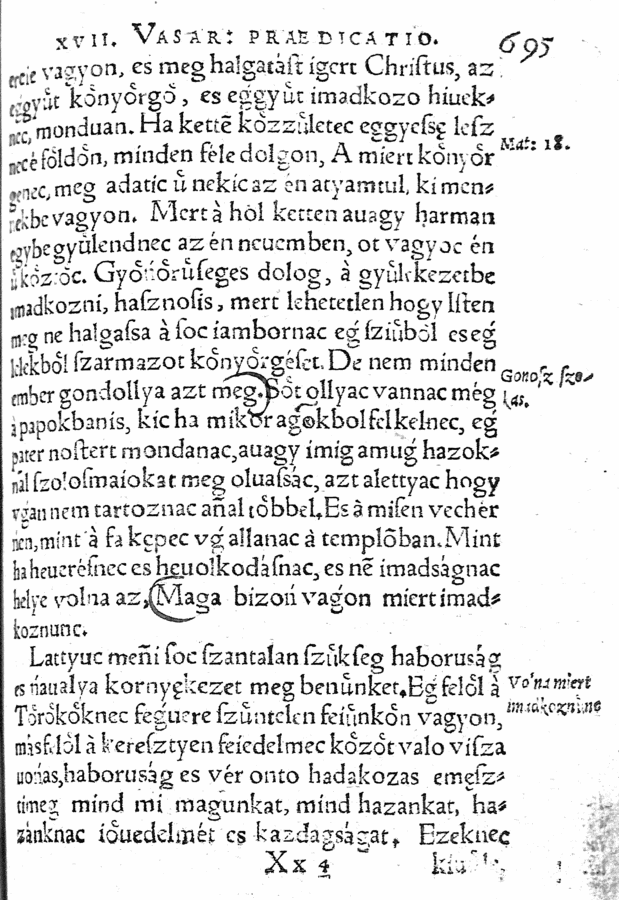 XVII. VASAR: PRAEDICATIO. 695
ereie vagyon, es meg halgatáſt igert Chriſtus, az
eggyűt koͤnyoͤrgoͤ, es eǵgyuͤt imadkozo hiuek⸗
nec, monduan. Ha kettē koͤzzuͤletec eggyeſſę leſz
Mat: 18.
necé foͤldoͤn, minden féle dolgon, A miert koͤnyoͤr
genec, meg adatic uͤ nekic az én atyamtul, ki men⸗
nekbe vagyon. Mert à hol ketten auagy harman
egybe gyuͤlendnec az én neuemben, ot vagyoc én
uͤ koͤztoc. Gyoͤńoͤruͤſeges dolog, à gyuͤlekezetbe
imadkozni, haſznoſis, mert lehetetlen hogy Iſten
meg ne halgaſſa à ſoc iambornac eǵ ſziuͤboͤl es eǵ
lelekboͤl ſzarmazot koͤnyoͤrgéſet. De nem minden
Gonoſz ſzo⸗
kas.
ember gondollya azt meg. Soͤt ollyac vannac még
à papokbanis, kic ha mikor agokbol felkelnec, eǵ
pater noſtert mondanac, auagy imig amuǵ hazok⸗
nál ſzoloſmaiokat meg oluaſsác, azt alettyac hogy
vǵan nem tartoznac añal toͤbbel. Es à miſen vecher
nien, mint à fa kępec vǵ allanac à templōban. Mint
ha heueréſnec es heuolkodáſnac, es nē imadságnac
helye volna az, Maga bizoń vaǵon miert imad⸗
koznunc.
Lattyuc meñi ſoc ſzantalan ſzuͤkſeg haboruság
es ńaualya kornyękezet meg benuͤnket. Eǵ feloͤl à
Vo'na miert
imadkoznūnc
Toͤroͤkoͤknec feǵuere ſzuͤntelen feiuͤnkoͤn vagyon,
másfeloͤl à kereſztyen feiedelmec koͤzoͤt valo viſza
uońas, haboruság es vér onto hadakozas emęſz⸗
timeg mind mi magunkat, mind hazankat, ha⸗
zánknac ioͤuedelmét es kazdagságat. Ezeknec
Xx 4